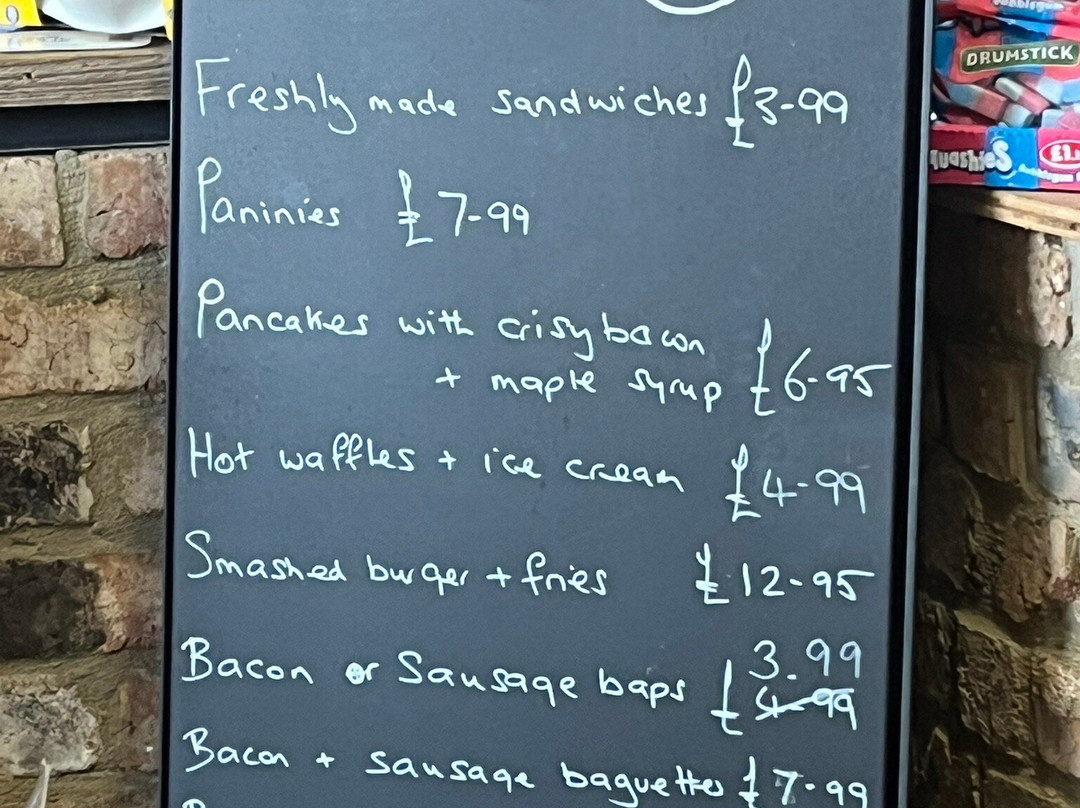 Freshly made sandwiches £3-99
Paninies £7-99
Pancakes with crisy bacon
+ maple syrup £6-95
Hot waffles + ice cream £4-99
Smashed burger + fries £12-95
Bacon or Sausage baps £3.99
4-99
Bacon + sausage baguettes £7-99
DRUMSTICK
quashies
£1